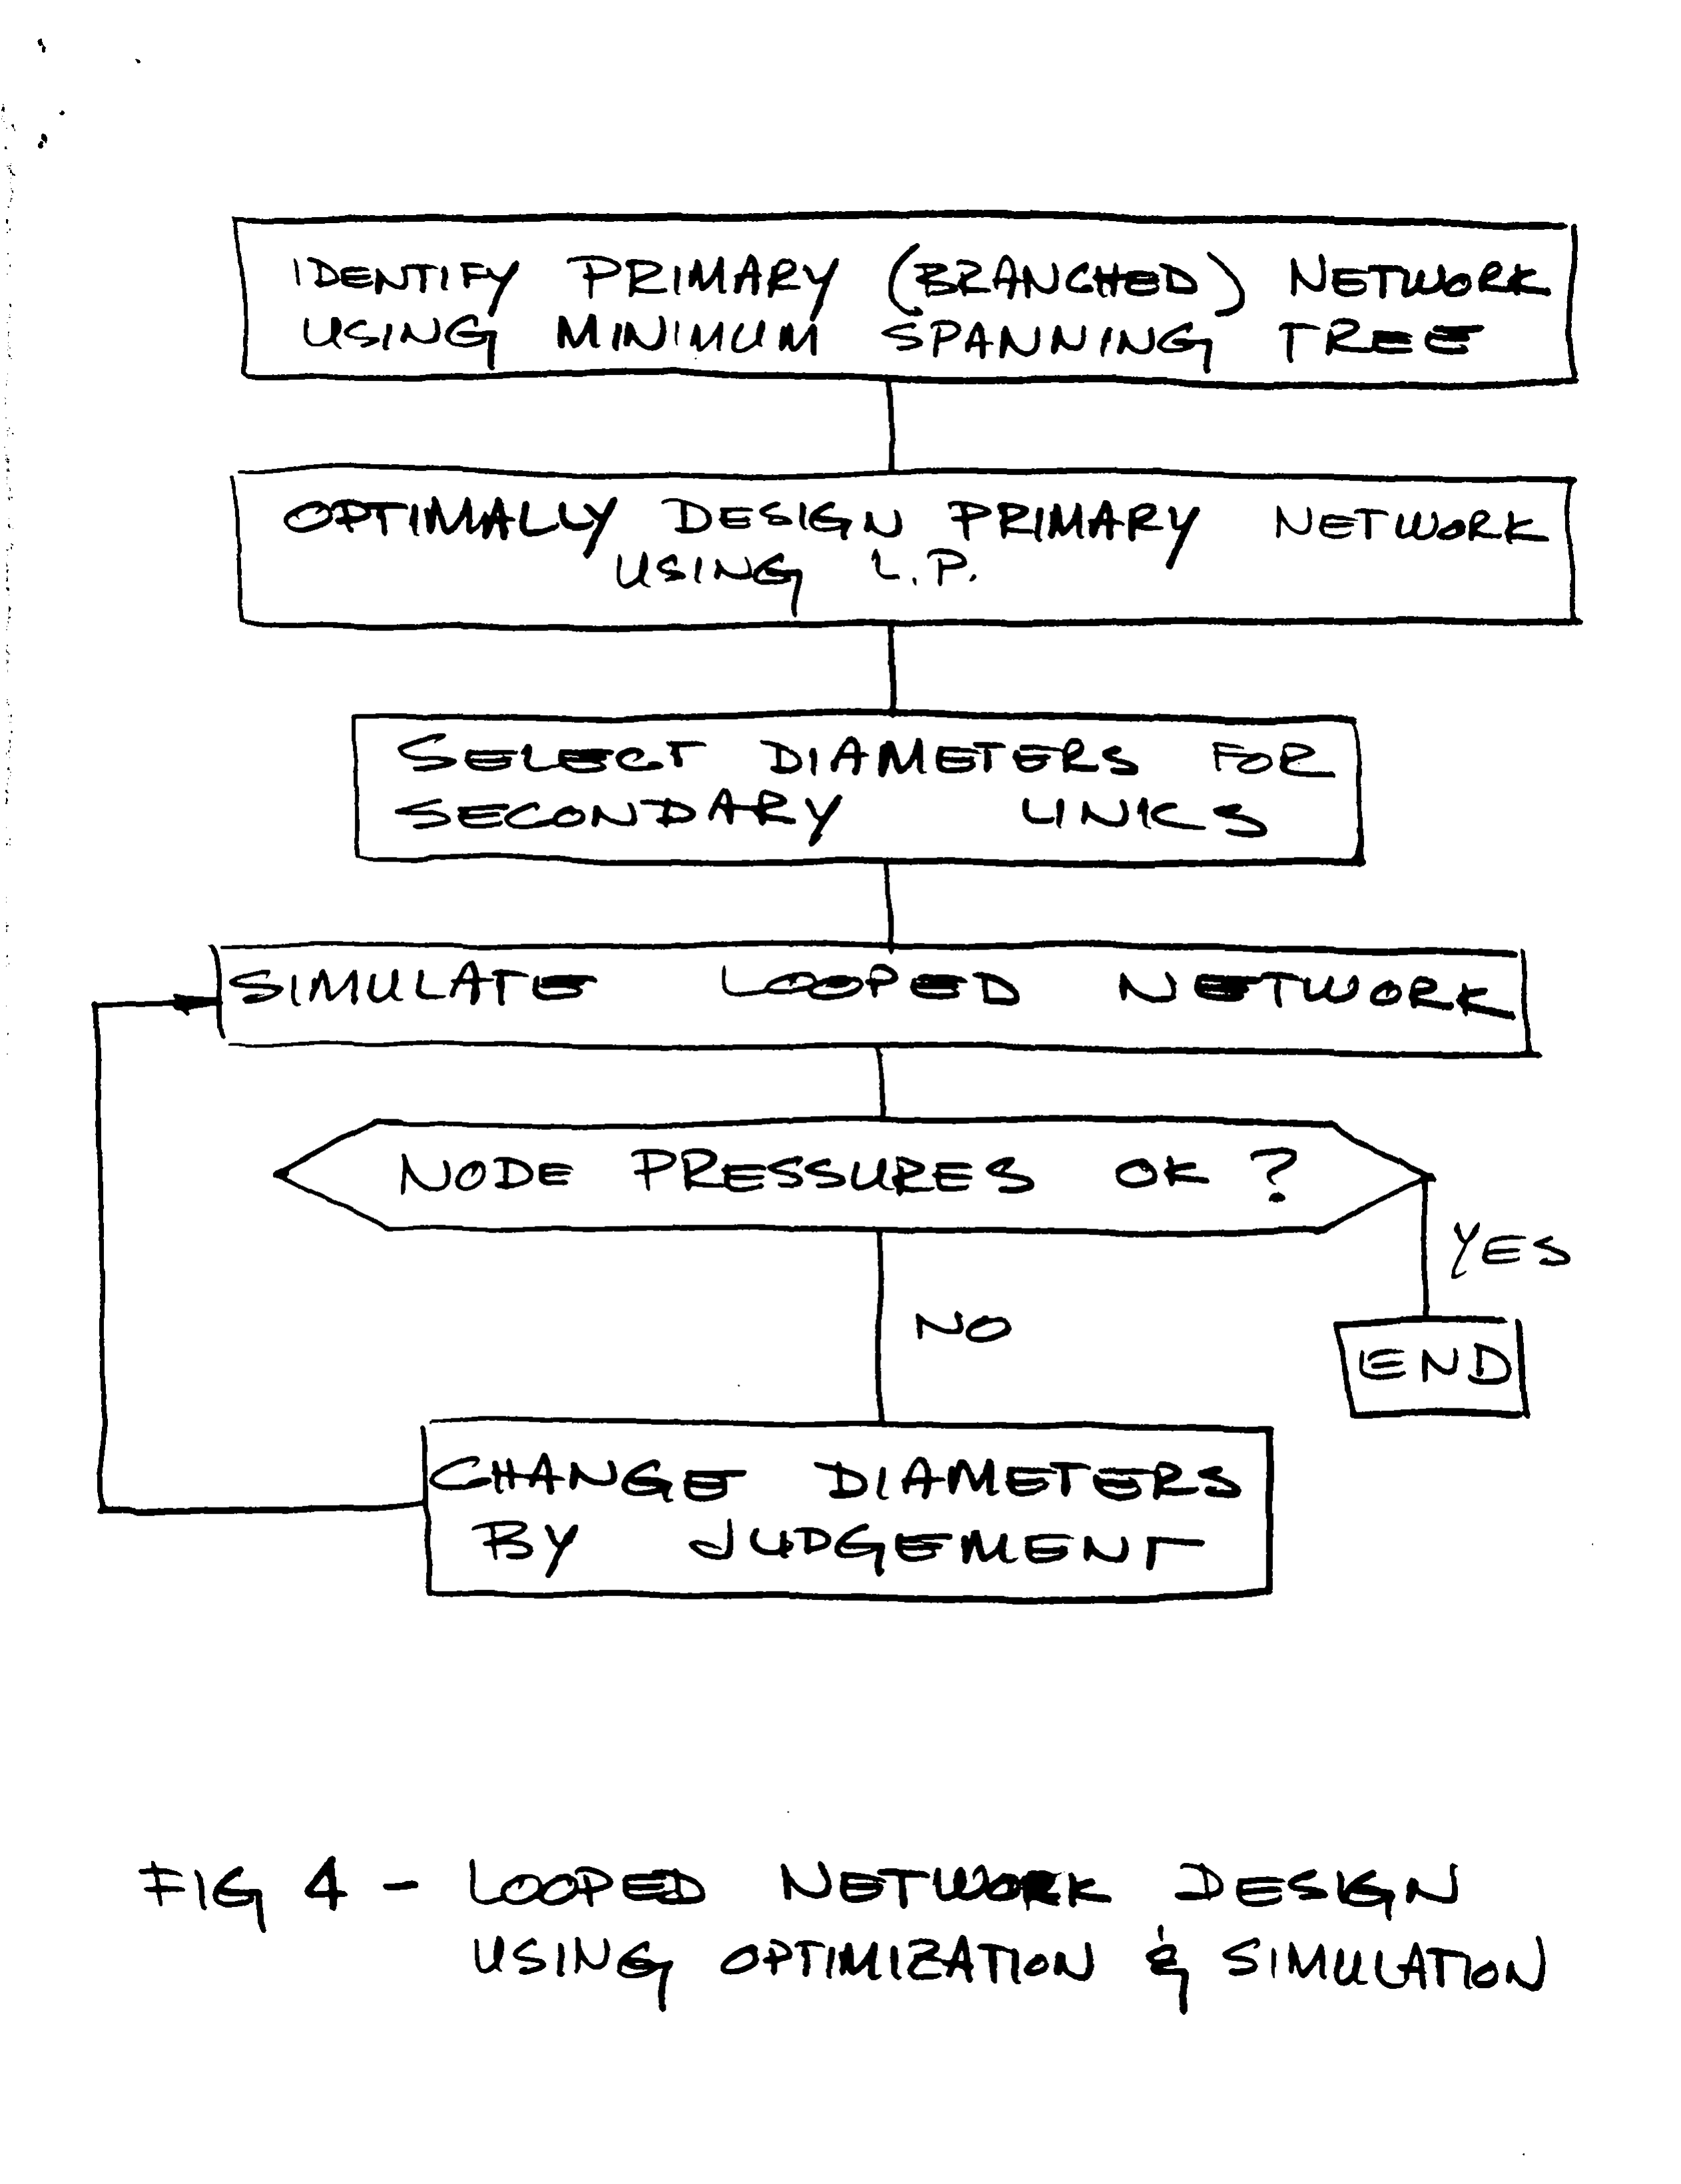 IDENTIFY PRIMARY (BRANCHED) NETWORK
USING MINIMUM SPANNING TREE
OPTIMALLY DESIGN PRIMARY NETWORK
USING L.P.
SELECT DIAMETERS FOR
SECONDARY LINKS
SIMULATE LOOPED NETWORK
NODE PRESSURES OK ?
YES
NO
END
CHANGE DIAMETERS
BY JUDGEMENT
FIG 4 - LOOPED NETWORK DESIGN
USING OPTIMIZATION & SIMULATION